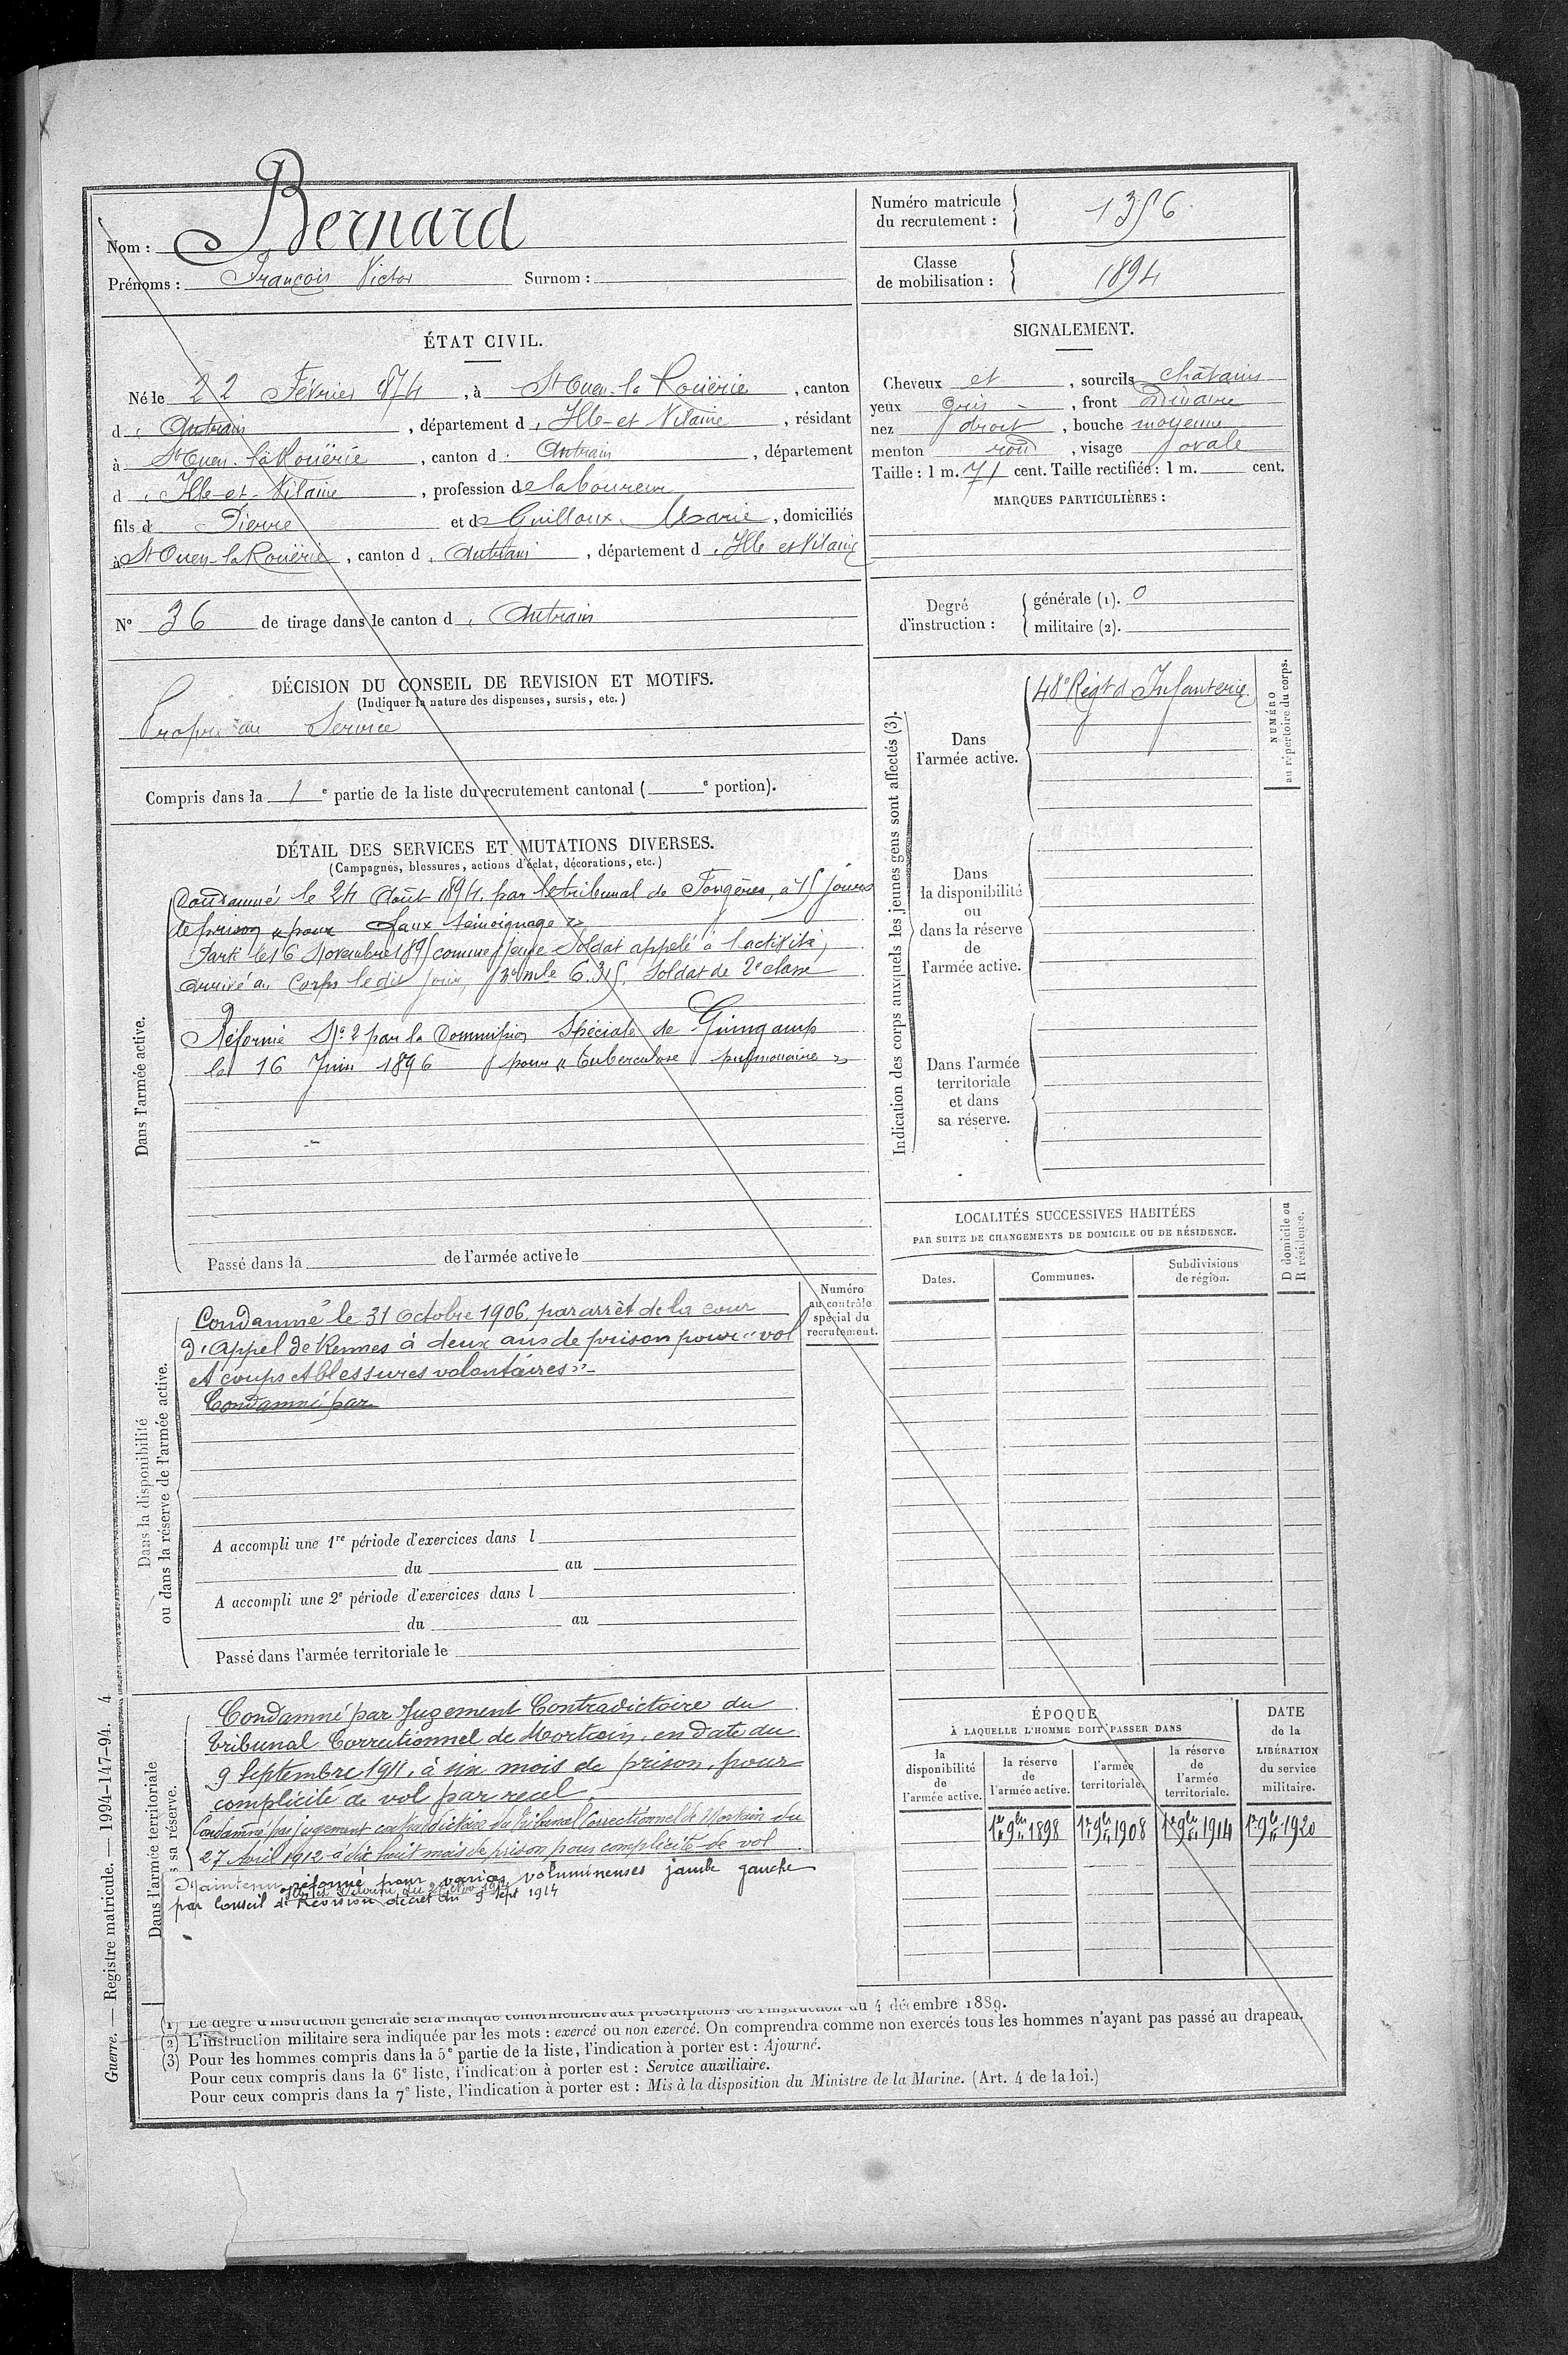 Nom : Bernard
Prénoms : François Victor Surnom :
Numéro matricule du recrutement : 1356
Classe de mobilisation : 1894
ÉTAT CIVIL.
Né le 22 Février 1874, à St Ouen-la Rouërie, canton
d'Antrain, département d'Ille-et-Vilaine, résidant
à St Ouen-la Rouërie, canton d'Antrain, département
d'Ille-et-Vilaine, profession de laboureur
fils de Pierre et de Guilloux Marie, domiciliés
à St Ouen-la Rouërie, canton d'Antrain, département d'Ille et Vilaine
N° 36 de tirage dans le canton d'Antrain
SIGNALEMENT.
Cheveux et, sourcils châtains
yeux gris, front ordinaire
nez droit, bouche moyenne
menton rond, visage ovale
Taille : 1 m. 71 cent. Taille rectifiée : 1 m. cent.
MARQUES PARTICULIÈRES :
Degré d'instruction : générale (1). 0
militaire (2).
DÉCISION DU CONSEIL DE REVISION ET MOTIFS.
(Indiquer la nature des dispenses, sursis, etc.)
Propre au Service
Compris dans la 1e partie de la liste du recrutement cantonal ( e portion).
DÉTAIL DES SERVICES ET MUTATIONS DIVERSES.
(Campagnes, blessures, actions d'éclat, décorations, etc.)
Dans l'armée active.
Condamné le 24 Août 1894, par le tribunal de Fougères, à 15 jours
de prison « pour faux témoignage »
Parti le 16 Novembre 1895 comme jeune Soldat appelé à l'activité,
arrivé au Corps le dit jour, mle 6.315, Soldat de 2e classe
Réformé N° 2 par la Commission Spéciale de Guingamp
le 16 Juin 1896 pour « tuberculose pulmonaire »
Passé dans la de l'armée active le
Indication des corps auxquels les jeunes gens sont affectés (3).
Dans l'armée active. 48e Regt d'Infanterie
NUMÉRO au répertoire du corps.
Dans la disponibilité ou dans la réserve de l'armée active.
Dans l'armée territoriale et dans sa réserve.
Dans la disponibilité ou dans la réserve de l'armée active.
Numéro au contrôle spécial du recrutement.
Condamné le 31 Octobre 1906, par arrêt de la cour
d'Appel de Rennes à deux ans de prison pour « vol
et coups et blessures volontaires »
Condamné par
A accompli une 1re période d'exercices dans l
du au
A accompli une 2e période d'exercices dans l
du au
Passé dans l'armée territoriale le
LOCALITÉS SUCCESSIVES HABITÉES
PAR SUITE DE CHANGEMENTS DE DOMICILE OU DE RÉSIDENCE.
Dates. Communes. Subdivisions de région. D domicile ou R résidence.
Dans l'armée territoriale
s sa réserve.
Condamné par Jugement Contradictoire du
tribunal Correctionnel de Mortain, en date du
9 Septembre 1911, à six mois de prison, pour
complicité de vol par recel.
Condamné par jugement contradictoire du Tribunal Correctionnel de Mortain du
27 Avril 1912 à dix huit mois de prison pour complicité de vol
Maintenu réformé pour varices volumineuses jambe gauche
par Conseil de Révision décret du 9 sept 1914
ÉPOQUE
À LAQUELLE L'HOMME DOIT PASSER DANS
la disponibilité de l'armée active. la réserve de l'armée active. l'armée territoriale. la réserve de l'armée territoriale. DATE de la LIBÉRATION du service militaire.
1er 9bre 1898 1er 9bre 1908 1er 9bre 1914 1er 9bre 1920
(1) Le degré d'instruction générale sera indiqué conformément aux prescriptions de l'instruction du 4 décembre 1889.
(2) L'instruction militaire sera indiquée par les mots : exercé ou non exercé. On comprendra comme non exercés tous les hommes n'ayant pas passé au drapeau.
(3) Pour les hommes compris dans la 5e partie de la liste, l'indication à porter est : Ajourné.
Pour ceux compris dans la 6e liste, l'indication à porter est : Service auxiliaire.
Pour ceux compris dans la 7e liste, l'indication à porter est : Mis à la disposition du Ministre de la Marine. (Art. 4 de la loi.)
Guerre. — Registre matricule. — 1994-147-94. 4